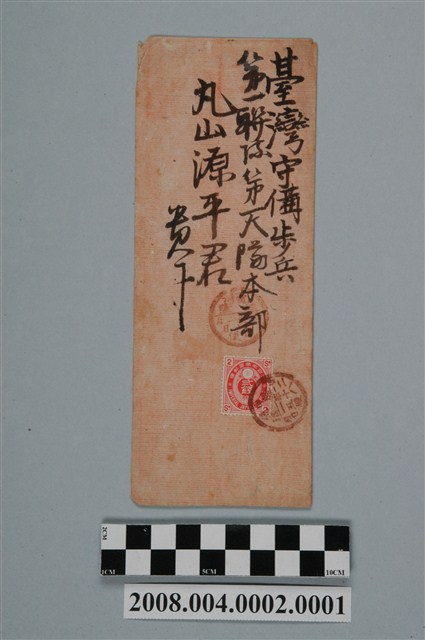 臺灣守備歩兵
第一聯隊第一大隊本部
丸山源平君
貴下
2CM
1CM
5CM
10CM
2008.004.0002.0001